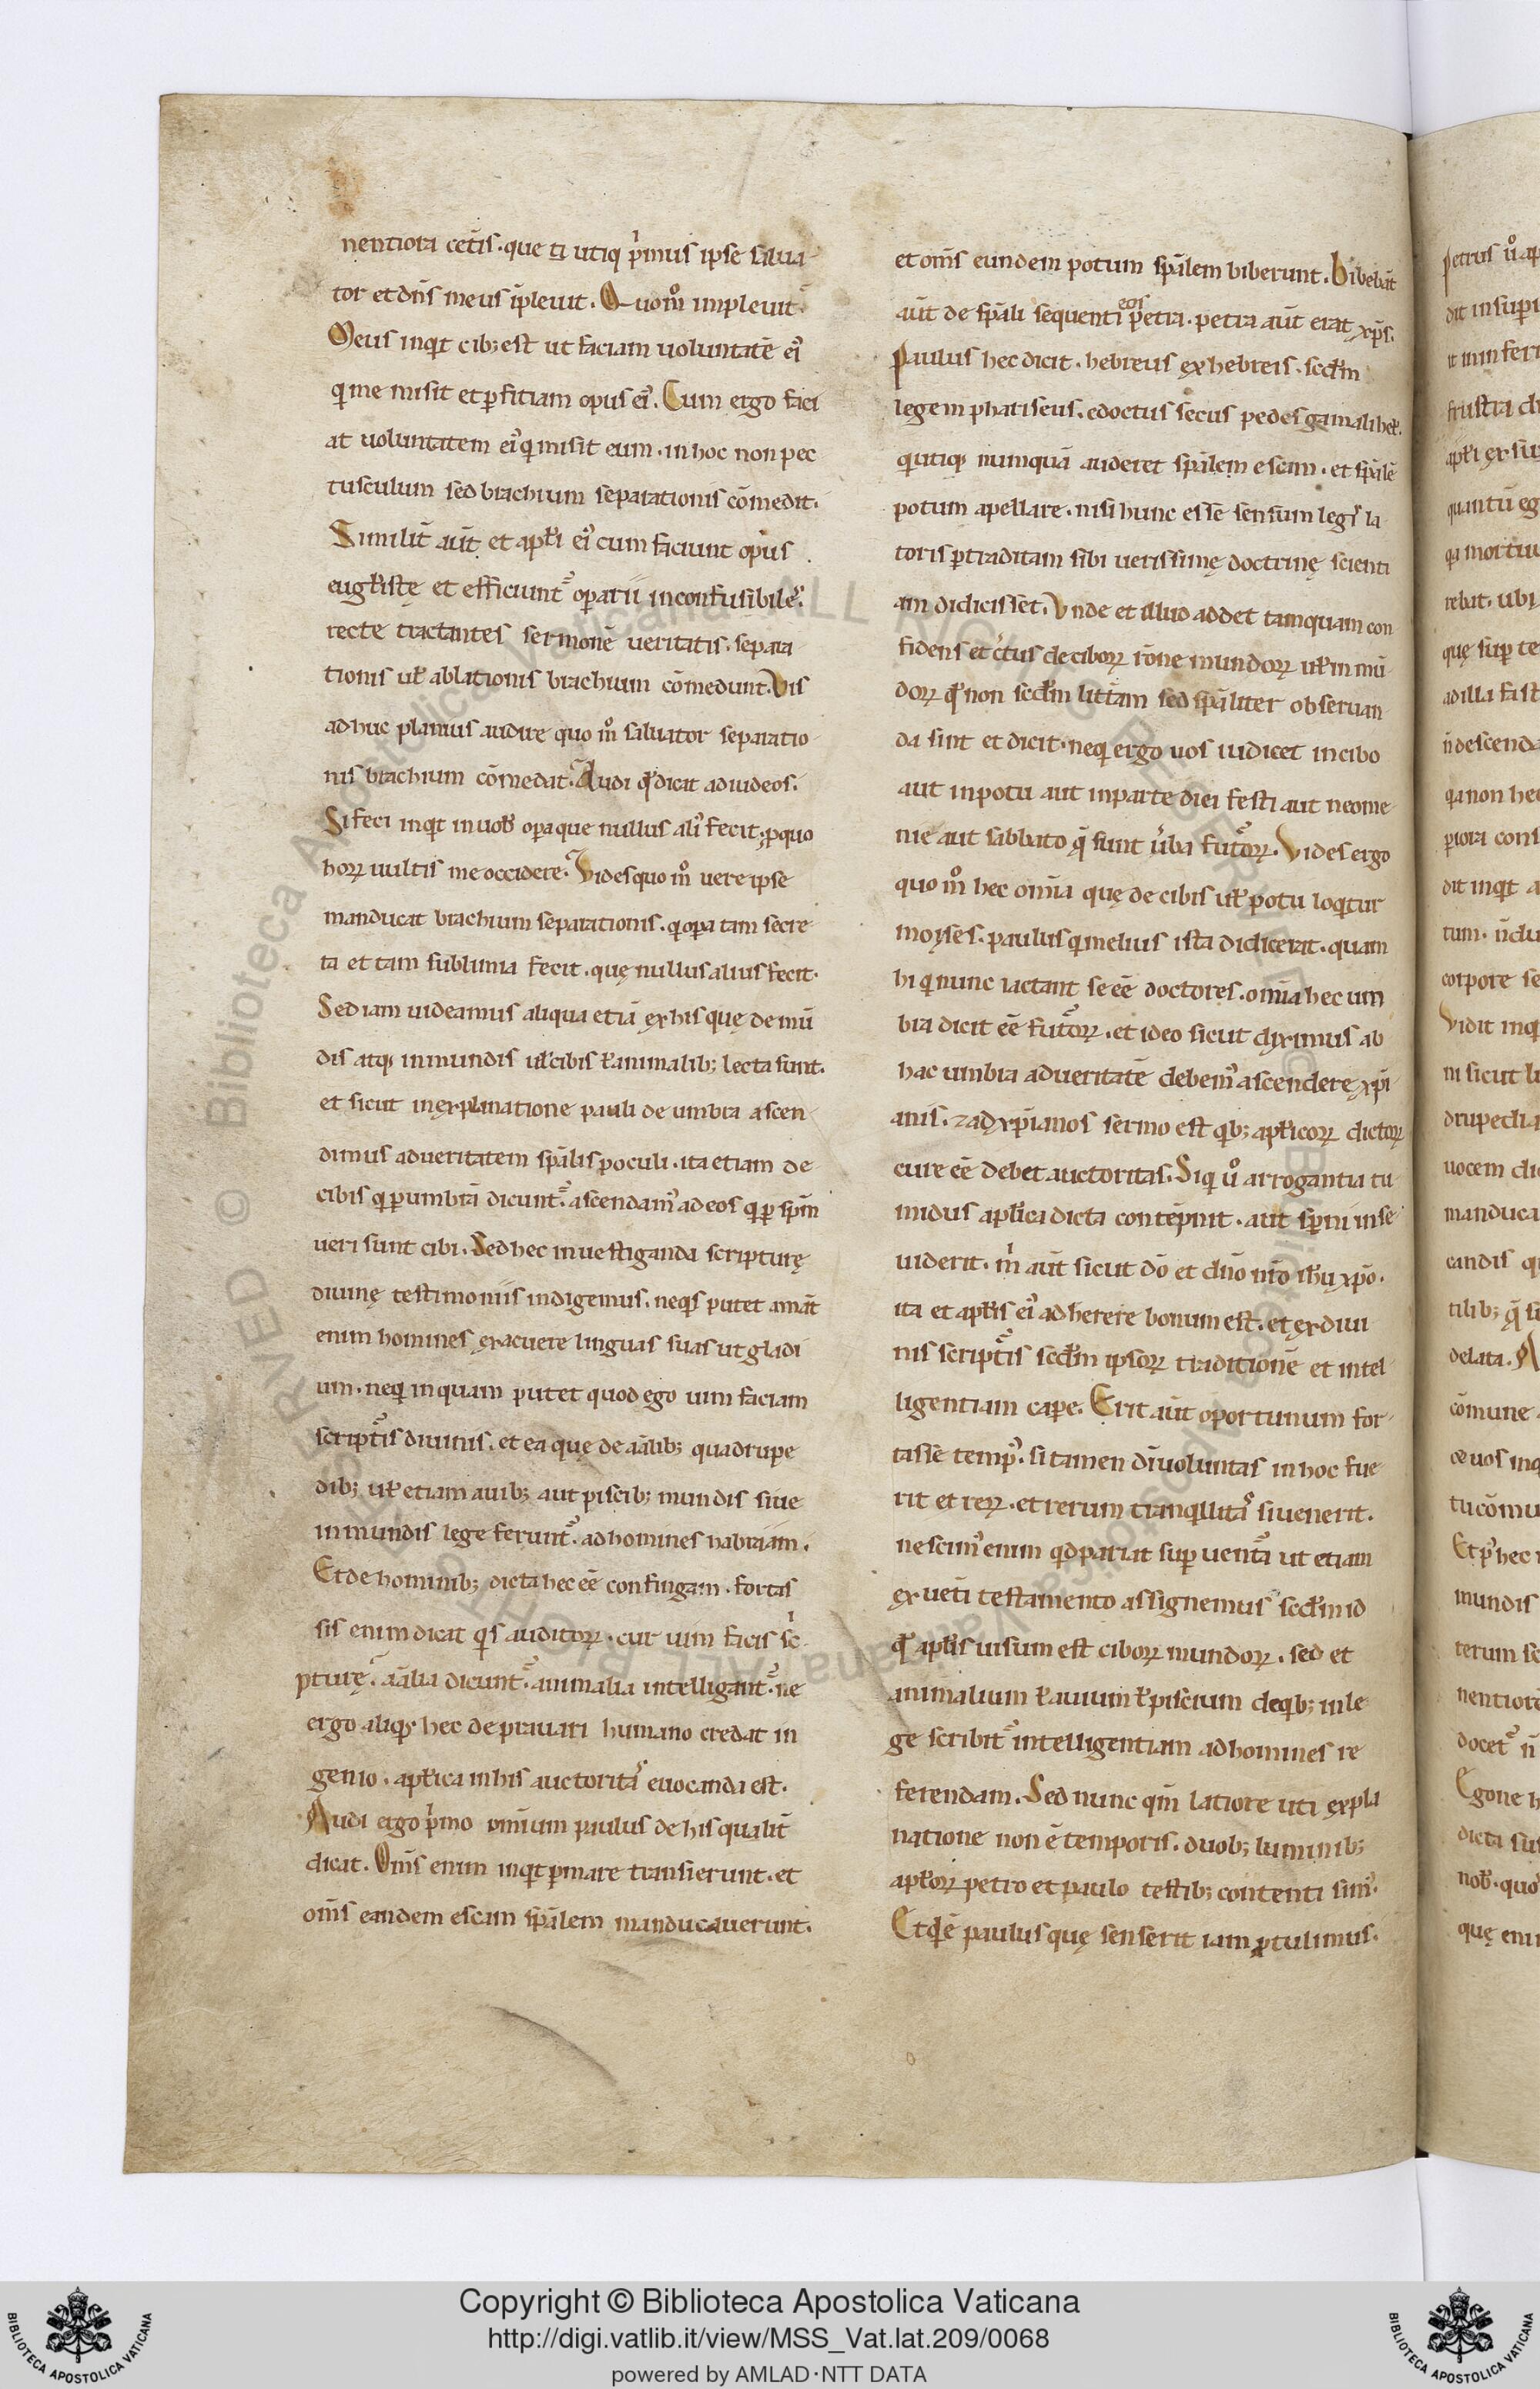 nentiora cet̄is. que ti utiq; p̍mus ipse salua-
tor et dn̄s meus ip̄leuit. Quom̊ impleuit.
Meus inq̍t cib; est ut faciam uoluntatē ei᷒
q̍ me misit et p̱fitiam opus ei᷒. Cum ergo faci
at uoluntatem ei᷒ q̍ misit eum. in hoc non pec
tusculum sed brachium separationis cōmedit.
Similit̄ aūt et apłi ei᷒ cum faciunt opus
eugłistę et efficiunt᷑ oꝑarii inconfusibiles.
recte tractantes sermonē ueritatis. separa
tionis uł ablationis brachium cōmedunt. Vis
adhuc planius audire quo m̊ saluator separatio
nis brachium cōmedat. Audi qď dicat ad iudeos.
Si feci inq̍t in uob̄ oꝑa que nullus ali᷒ fecit. ꝓ quo
hoꝝ uultis me occidere. Vides quo m̊ uere ipse
manducat brachium separationis. q̍ oꝑa tam secre
ta et tam sublimia fecit. quę nullus alius fecit.
Sed iam uideamus aliqua etiā ex his quę de mū
dis atq; inmundis uł cibis ł animalib; lecta sunt.
et sicut in explanatione pauli de umbra ascen
dimus ad ueritatem spālis poculi. ita etiam de
cibis q̍ ꝑ umbrā dicunt᷑. ascendam᷒ ad eos q̍ ꝑ spm̄
ueri sunt cibi. Sed hec inuestiganda scripturę
diuinę testimoniis indigemus. neq̍s putet amāt
enim homines exacuere linguas suas ut gladi
um. neq̍ inquam putet quod ego uim faciam
script᷑is diuinis. et ea quę de aālib; quadrupe
dib; uł etiam auib; aut piscib; mundis siue
inmundis lege ferunt᷑. ad homines trabriam.
Et de hominib; dicta hec eē confingam. fortas
sis enim dicat q̍s auditoꝝ. cur uim facis sc̍
pturę. aālia dicunt᷑. animalia intelligant᷑. ne
ergo aliq̍s hec deprauari humano credat in
genio. apłica in his auctorita᷒ euocanda est.
Audi ergo p̍mo omnium paulus de his qualit̄
dicat. Om̄s enim inq̍t ꝑ mare transierunt. et
om̄s eandem escam spālem manducauerunt.
et om̄s eundem potum spālem biberunt. Bibebāt
aūt de spāli sequenti eos petra. petra aūt erat xp̄s.
Paulus hec dicit. hebreus ex hebreis. scđm
legem phariseus. edoctus secus pedes gamalihel.
q̍ utiq; numquā auderet spālem escam. et spālē
potum apellare. nisi hunc esse sensum legis la
toris ꝑ traditam sibi uerissimę doctrinę scienti
am didicisset. Vnde et illud addet tamquam con
fidens et c̍tus de ciboꝝ rōne mundoꝝ uł in mū
doꝝ qď non scđm litt̄am sed spāliter obseruan
da sint et dicit. neq̍ ergo uos iudicet in cibo
aut in potu aut in parte diei festi aut neome
nie aut sabbato q̄ sunt ūba fut᷑oꝝ. Vides ergo
quo m̊ hec omīa quę de cibis uł potu loq̍tur
moyses. paulus q̍ melius ista didicerat. quam
hi q̍ nunc iactant se eē doctores. omīa hec um
bra dicit eē fut᷑oꝝ. et ideo sicut diximus ab
hac umbra ad ueritatē debem᷒ ascendere xp̄i
anis. ⁊ ad xp̄ianos sermo est q̍b; apłicoꝝ dictoꝝ
cure eē debet auctoritas. Siq̍ ů arrogantia tu
midus apłica dicta contēpnit. aut spernit in se
uiderit. m̍ aūt sicut dō et dn̄o nr̄o ih̄u xp̄o.
ita et apłis ei᷒ adherere bonum est. et ex diui
nis script᷑is scđm ipsoꝝ traditionē et intel
ligentiam capere. Erit aūt oportunum for-
tasse temp᷒. si tamen dī uoluntas in hoc fue
rit et reꝝ. et rerum tranq̍llita᷒ si uenerit.
nescim᷒ enim q̍d pariat suꝑ uent᷑a ut etiam
ex uet̄i testamento assignemus scđm id
qď apłis uisum est ciboꝝ mundoꝝ. sed et
animalium ł auium ł piscium de q̍b; in le
ge scribit᷑ intelligentiam ad homines re
ferendam. Sed nunc qm̄ latiore uti expla
natione non ē temporis. duob; luminib;
apłoꝝ petro et paulo testib; contenti sim᷒.
Et q̍dē paulus quę senserit iam ꝓtulimus.
petrus ů ap
dit in supi
frustra di
apłi ex su
quantū eg
q̍a mortuu
rebat. ubi
quę suꝑ te
ad illa fast
n̄ descenda
q̍a non hec
ꝑiora cons
dit inq̍t a
tum. n̄du
corpore se
Vidit inq̍
ni sicut li
drupedia
uocem di
manduca
candis q̍
tilib; q̄ s
delata. A
cōmune
ce uos inq
tu cōmu
Et p᷒ hec
mundis
terum sc
nentiore
docet᷑ n̄
Egone h
dicta su
nob̄. quo
quę enī
Copyright © Biblioteca Apostolica Vaticana
http://digi.vatlib.it/view/MSS_Vat.lat.209/0068
powered by AMLAD·NTT DATA
BIBLIOTECA APOSTOLICA VATICANA
BIBLIOTECA APOSTOLICA VATICANA